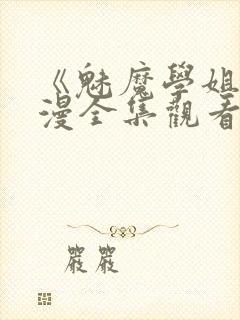 《魅魔學姐
漫全集觀看
嚴嚴